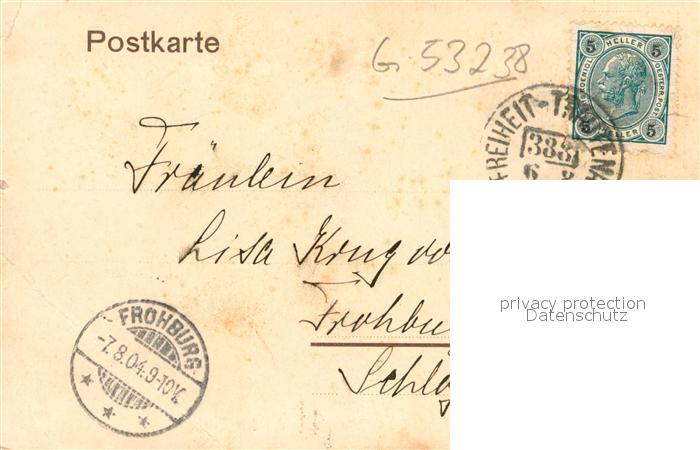 Postkarte
G. 53238
5 HELLER 5
OESTERR. POST
5 HELLER 5
FREIHEIT-T
388
6
Fräulein
Lisa Krug
Frohbu
Schlo
FROHBURG
-7.8.04.9-10V.
privacy protection
Datenschutz